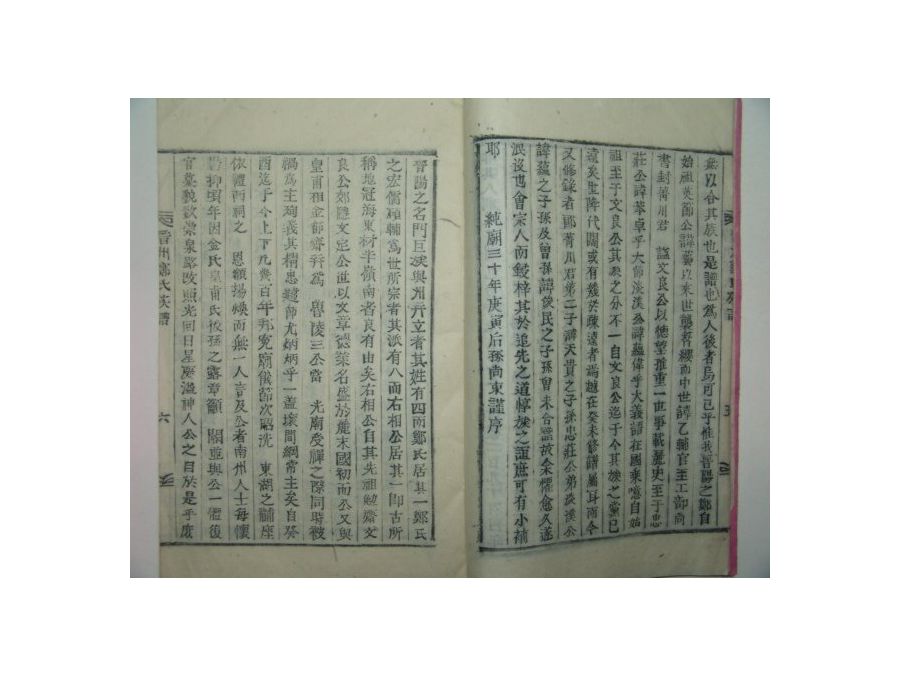 無以合其族也是譜也爲人後者烏可已乎惟我晉陽之鄭自
始祖英節公諱藝以來世襲簪纓而中世諱乙輔官至工部尙
書封菁川君 諡文良公以德望推重一世事載麗史至于忠
莊公諱苯卓乎大節淡溪公諱蘊偉乎大義譜在國乘噫自始
祖至于文良公其派之分不一自文良公迄于今其族之蕃已
遠矣生降代闊或有幾於陳遠者歲越在癸未修譜屬耳而今
又修錄者卽菁川君第二子諱天貴之子孫忠莊公弟淡溪公
諱蘊之子孫及曾孫諱俊民之子孫曾未合譜故余懼愈久遂
泯沒也會宗人而鋟梓其於追先之道惇族之誼庶可有小補
耶 純廟三十年庚寅后孫尙東謹序
五
晉陽之名門巨族與州幷立者其姓有四而鄭氏居其一鄭氏
之宏儒碩輔爲世所宗者其派有八而右相公居其一卽古所
稱地冠海東材半嶺南者良有由矣右相公自其先祖勉齋文
良公郊隱文定公世以文章德業名盛於麗末國初而公又與
皇甫相金節齋幷爲 魯陵三公當 光廟受禪之際同時被
禍爲主殉義其精忠建節尤炳炳乎一盖壞間綱常主矣自癸
酉迄于今上下九幾百年邦寃廟儀節次昭洗 東湖之鬴座
依禮酉祠之 恩額揚煥而無一人言及公者南州人士每懷
菀抑頃年因金氏皇甫氏後孫之露章籲 闕並與公一體復
官墓貌歆崇泉路改照光回日星慶溢神人公之目於是乎庶
晉州鄭氏族譜
六